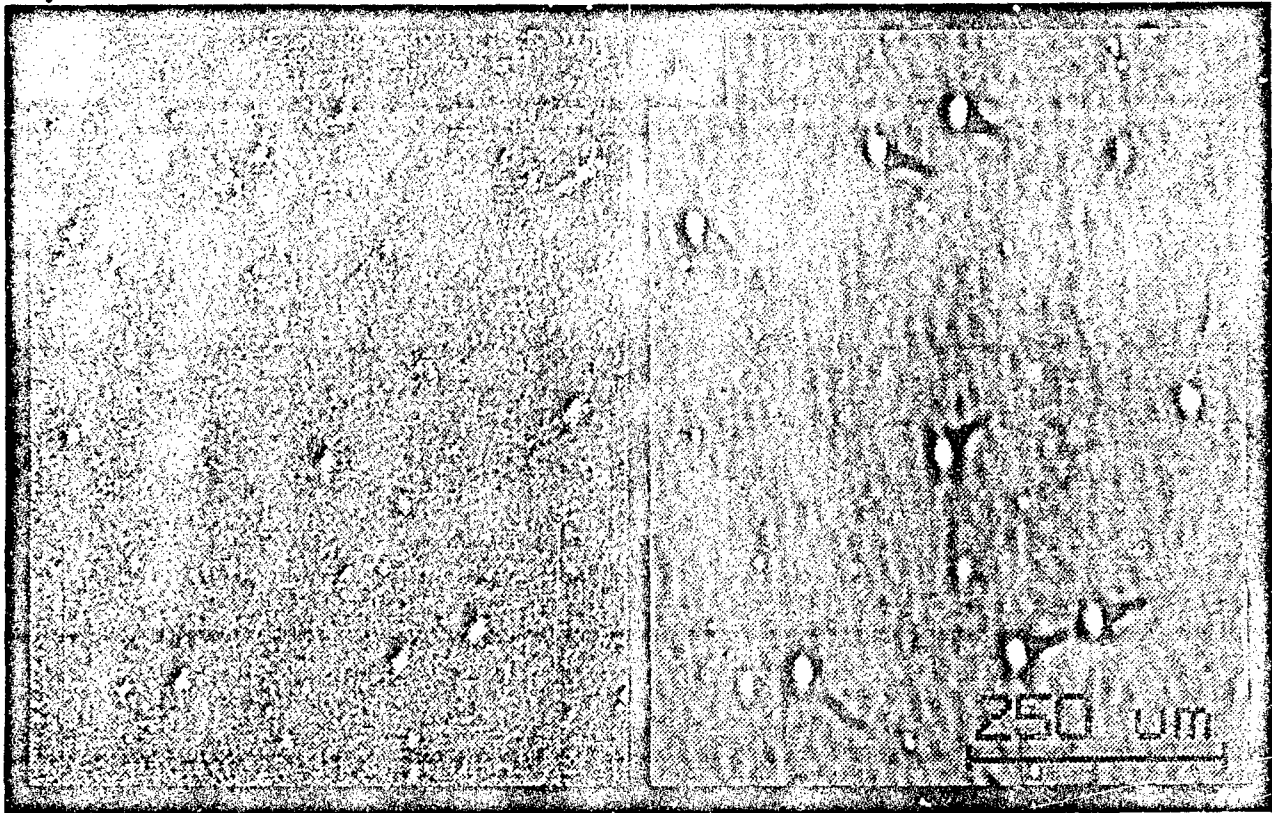 250 um